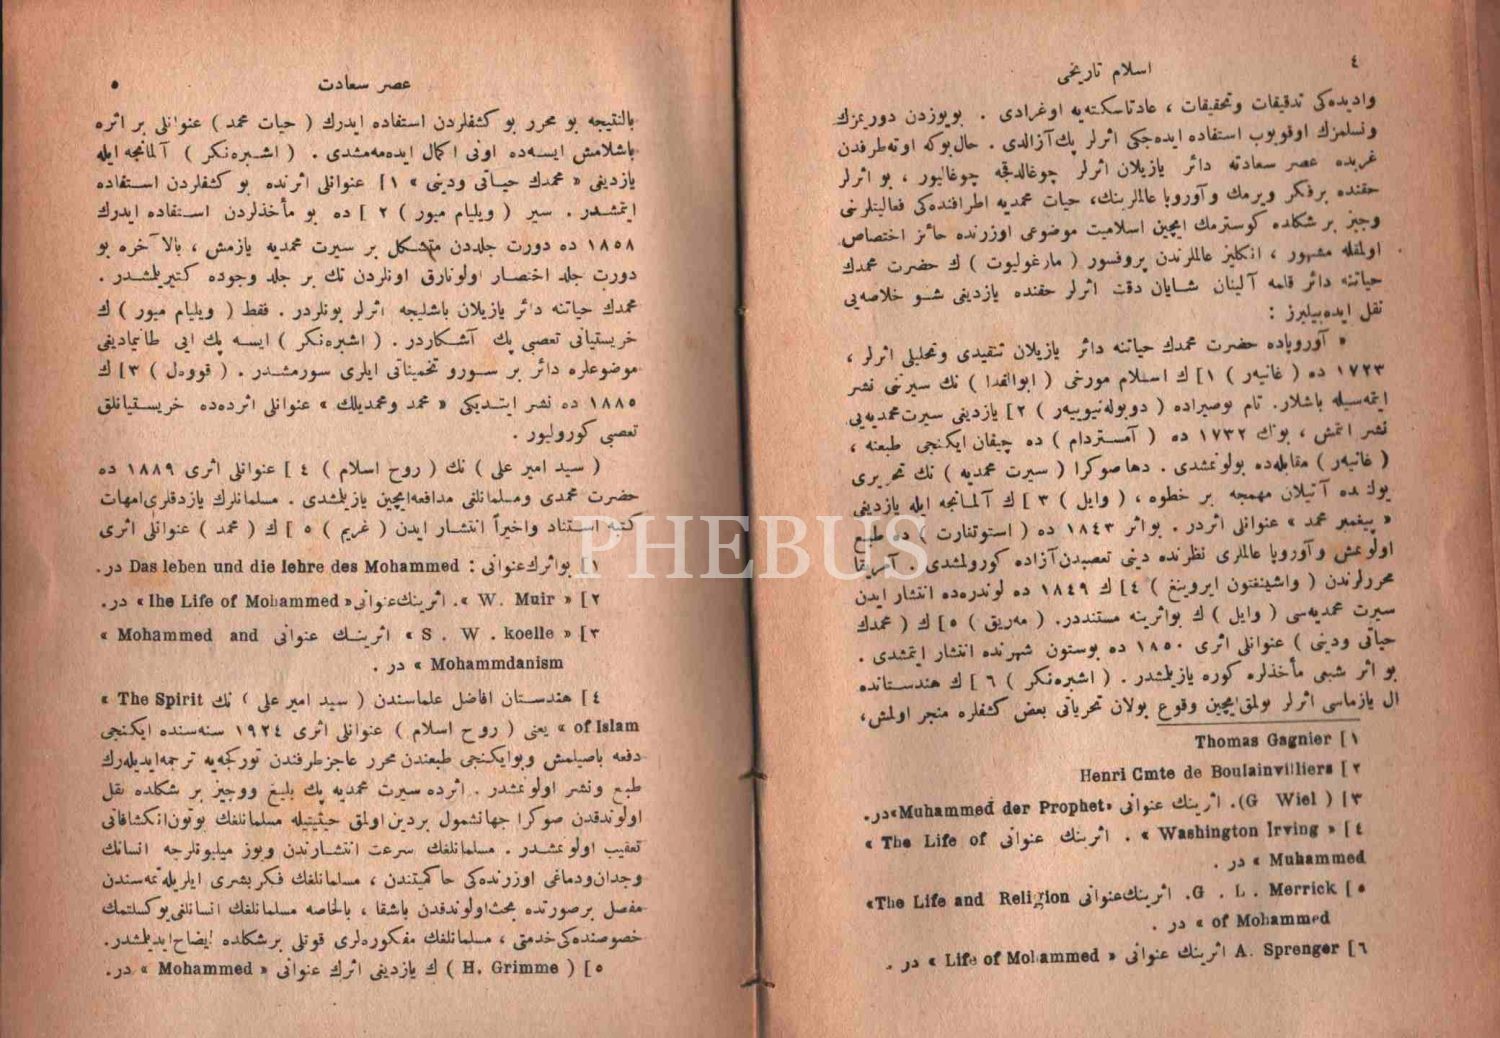 ٤
اسلام تاریخی
وادیده‌کی تدقیقات وتحقیقات ، عادتاسکته‌یه اوغرادی . بویوزدن دوریمزك
ونسلمزك اوقویوب استفاده ایده‌جکی اثرلر پك آزالدی . حال‌بوکه اوته‌طرفدن
غربده عصر سعادته دائر یازیلان اثرلر چوغالدقجه چوغالیور ، بو اثرلر
حقنده برفکر ویرمك وآوروپا عالملرینك، حیات محمدیه اطرافنده‌کی فعالیتلرینی
وجیز بر شکلده کوسترمك ایچین اسلامیت موضوعی اوزرنده حائز اختصاص
اولمقله مشهور ، انکلیز عالملرندن پروفسور ( مارغولیوت ) ك حضرت محمدك
حیاتنه دائر قلمه آلینان شایان دقت اثرلر حقنده یازدیغی شو خلاصه‌یی
نقل ایده‌بیلیرز :
« آوروپاده حضرت محمدك حیاتنه دائر یازیلان تنقیدی وتحلیلی اثرلر ،
١٧٢٣ ده ( غانیه‌ر ) ١] ك اسلام مورخی ( ابوالفدا ) نك سیرتنی نشر
ایتمه‌سیله باشلار. تام بوصیراده ( دوبوله‌نیوییه‌ر ) ٢] یازدیغی سیرت‌محمدیه‌یی
نشر ایتمش ، بونك ١٧٣٢ ده ( آمستردام ) ده چیقان ایکنجی طبعنه ،
( غانیه‌ر ) مقابله‌ده بولونمشدی . دهاصوکرا ( سیرت محمدیه ) نك تحریری
یولنده آتیلان مهمجه بر خطوه ، ( وایل ) ٣ ] ك آلمانجه ایله یازدیغی
« پیغمبر محمد » عنوانلی اثردر . بواثر ١٨٤٣ ده ( استوتغارت ) ده طبع
اولونمش وآوروپا عالملری نظرنده دینی تعصبدن‌آزاده کورولمشدی . آمریقا
محررلرندن ( واشینغتون ایروینغ ) ٤] ك ١٨٤٩ ده لوندره‌ده انتشار ایدن
سیرت محمدیه‌سی ( وایل ) ك بواثرینه مستنددر. ( مه‌ریق ) ٥] ك ( محمدك
حیاتی ودینی ) عنوانلی اثری ١٨٥٠ ده بوستون شهرنده انتشار ایتمشدی .
بو اثر شیعی مأخذلره کوره یازیلمشدر . ( اشپره‌نکر ) ٦ ] ك هندستانده
ال یازماسی اثرلر بولمق‌ایچین وقوع بولان تحریاتی بعض کشفلره منجر اولمش،
١] Thomas Gagnier
٢] Henri Cmte de Boulainvilliers
٣] ( G Wiel). اثرینك عنوانی «Muhammed der Prophet»در.
٤] « Washington Irving » . اثرینك عنوانی « The Life of
Muhammed » در .
٥] G . L . Merrick. اثرینك‌عنوانی «The Life and Religion
of Mohammed » در .
٦] A. Sprenger اثرینك عنوانی « Life of Mohammed » در .
عصر سعادت
٥
بالنتیجه بو محرر بو کشفلردن استفاده ایدرك ( حیات محمد ) عنوانلی بر اثره
باشلامش ایسه‌ده اونی اکمال ایده‌مه‌مشدی . ( اشپره‌نکر ) آلمانجه ایله
یازدیغی « محمدك حیاتی ودینی » ١] عنوانلی اثرنده بو کشفلردن استفاده
ایتمشدر . سیر ( ویلیام میور ) ٢ ] ده بو مأخذلردن استفاده ایدرك
١٨٥٨ ده دورت جلددن متشکل بر سیرت محمدیه یازمش ، بالآخره بو
دورت جلد اختصار اولونارق اونلردن تك بر جلد وجوده کتیریلمشدر .
محمدك حیاتنه دائر یازیلان باشلیجه اثرلر بونلردر . فقط ( ویلیام میور ) ك
خریستیانی تعصبی پك آشکاردر . ( اشپره‌نکر ) ایسه پك ایی طانیمادیغی
موضوعلره دائر بر سورو تخمیناتی ایلری سورمشدر . ( قووه‌ل ) ٣] ك
١٨٨٥ ده نشر ایتدیکی « محمد ومحمدیلك » عنوانلی اثرده‌ده خریستیانلق
تعصبی کورولیور .
( سید امیر علی ) نك ( روح اسلام ) ٤ ] عنوانلی اثری ١٨٨٩ ده
حضرت محمدی ومسلمانلغی مدافعه‌ایچین یازیلمشدی . مسلمانلرك یازدقلری‌امهات
کتبه استناد واخیراً انتشار ایدن ( غریم ) ٥ ] ك ( محمد ) عنوانلی اثری
١] بواثرك‌عنوانی : Das leben und die lehre des Mohammed در.
٢] « W. Muir ». اثرینك‌عنوانی«Ihe Life of Mohammed » در.
٣] « S . W . koelle » اثرینك عنوانی « Mohammed and
Mohammdanism » در .
٤ ] هندستان افاضل علماسندن ( سید امیر علی ) نك « The Spirit
of Islam » یعنی ( روح اسلام ) عنوانلی اثری ١٩٢٤ سنه‌سنده ایکنجی
دفعه باصیلمش وبوایکنجی طبعندن محرر عاجزطرفندن تورکجه‌یه ترجمه‌ایدیله‌رك
طبع ونشر اولونمشدر . اثرده سیرت محمدیه پك بلیغ ووجیز بر شکلده نقل
اولوندقدن صوکرا جهانشمول بردین‌اولمق حیثیتیله مسلمانلغك بوتون‌انکشافاتی
تعقیب اولونمشدر . مسلمانلغك سرعت انتشارندن ویوز میلیونلرجه انسانك
وجدان‌ودماغی اوزرنده‌کی حاکمیتندن ، مسلمانلغك فکربشری ایلریله‌تمه‌سندن
مفصل برصورتده بحث‌اولوندقدن باشقا ، بالخاصه مسلمانلغك انسانلغی‌یوکسلتمك
خصوصنده‌کی‌خدمتی ، مسلمانلغك مفکوره‌لری قوتلی برشکلده ایضاح‌ایدیلمشدر.
٥ ] ( H. Grimme ) ك یازدیغی اثرك عنوانی « Mohammed » در.
PHEBUS